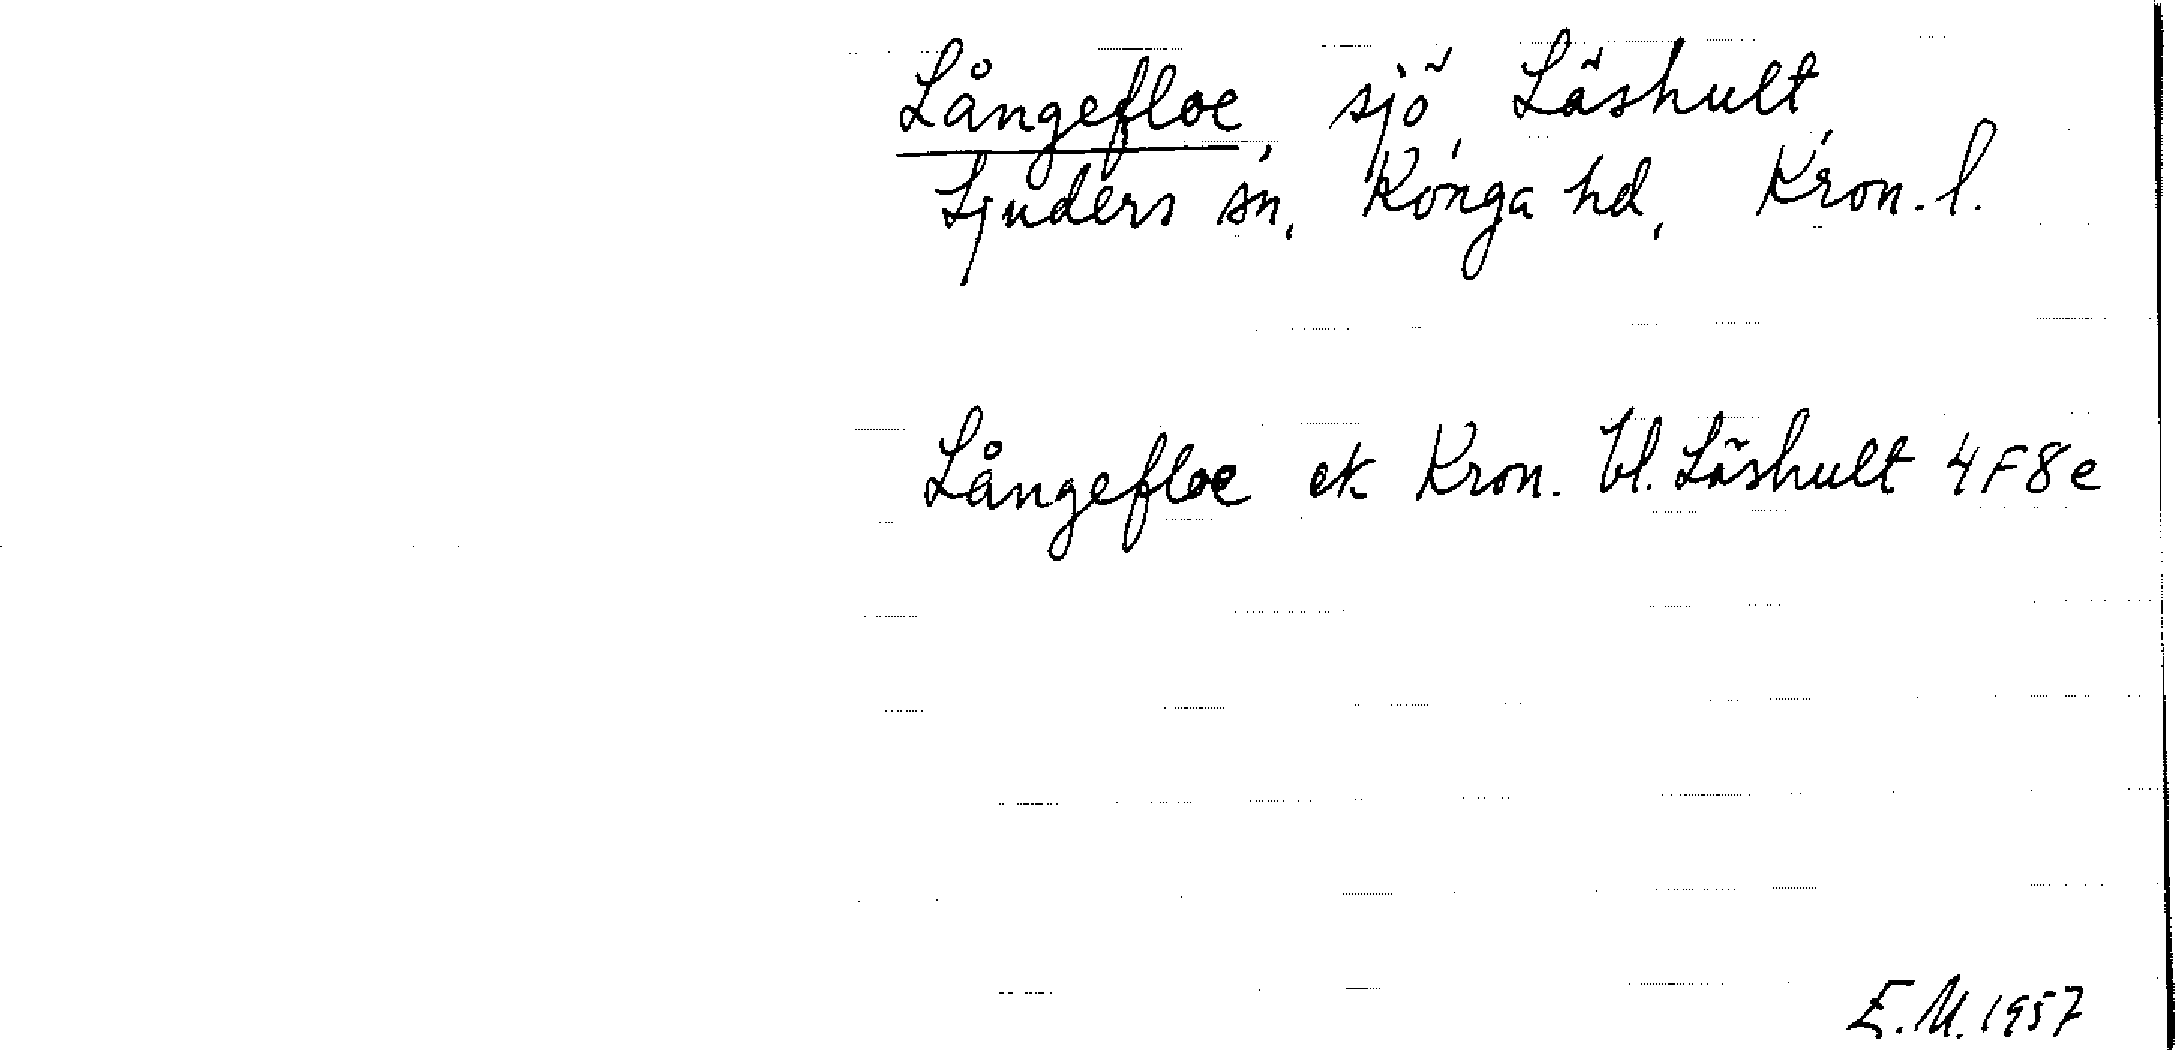 Långefloe, sjö, Läshult,
Ljuders sn, Konga hd, Kron. l.
Långefloe ek Kron. bl. Läshult 4F8e
E.M. 1957